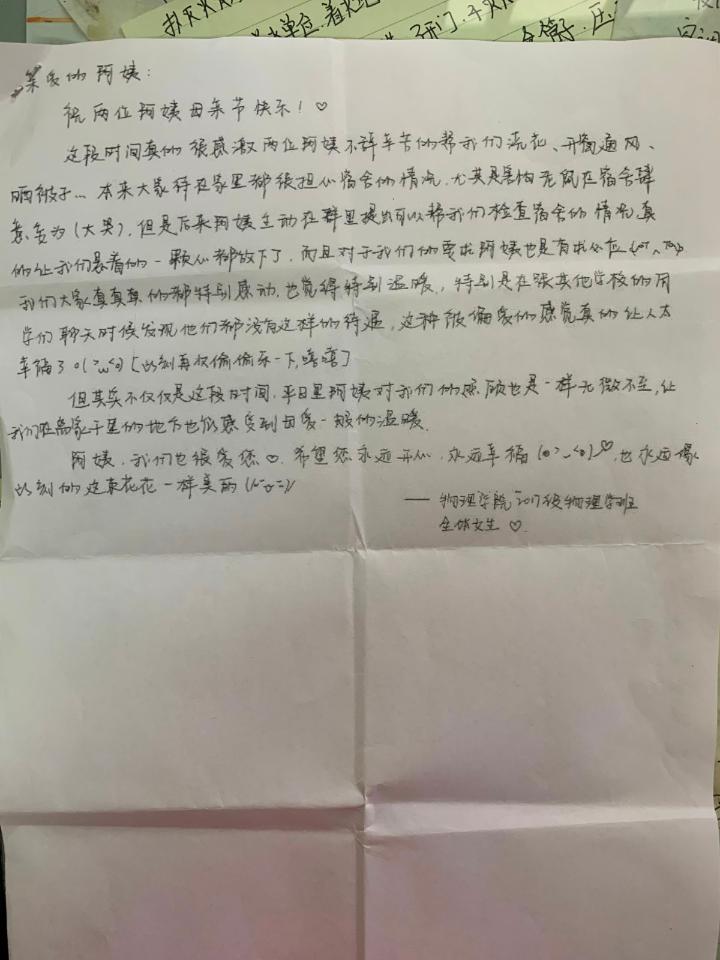 扑灭火
单位.着火地
开门.平
亲爱的阿姨：
祝两位阿姨母亲节快乐！♡
这段时间真的很感激两位阿姨不辞辛苦的帮我们浇花、开窗通风、
晒被子... 本来大家待在家里都很担心宿舍的情况，尤其是害怕老鼠在宿舍肆
意妄为（大哭），但是后来阿姨主动在群里提出可以帮我们检查宿舍的情况，真
的让我们悬着的一颗心都放下了，而且对于我们的要求阿姨也是有求必应
我们大家真真真的都特别感动，也觉得特别温暖，特别是在跟其他学校的同
学们聊天时候发现他们都没有这样的待遇，这种被偏爱的感觉真的让人太
幸福了 o(>ω<o) [此刻再次偷偷乐一下，嘻嘻]
但其实不仅仅是这段时间，平日里阿姨对我们的照顾也是一样无微不至，让
我们距离家千里的地方也能感受到母爱一般的温暖.
阿姨，我们也很爱您♡. 希望您永远开心，永远幸福 (o>_<o)♡，也永远像
此刻的这束花花一样美丽
—— 物理学院2017级物理学班
全体女生 ♡.